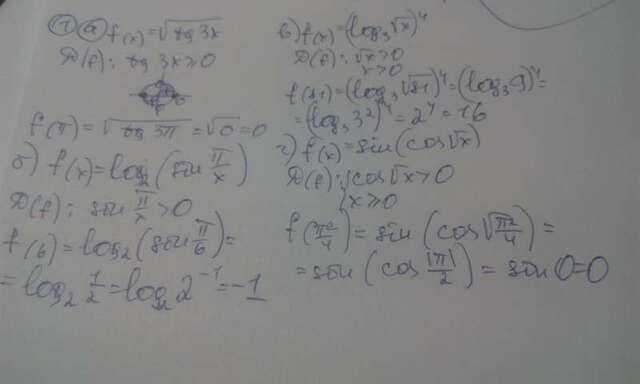 ① а) f(x)=√(tg 3x)
D(f): tg 3x≥0
f(π)=√(tg 3π)=√0=0
б) f(x)=log₂(sin π/x)
D(f): sin π/x>0
f(6)=log₂(sin π/6)=
=log₂ 1/2=log₂ 2⁻¹=-1
в) f(x)=(log₃ √x)⁴
D(f): √x>0
x>0
f(81)=(log₃ √81)⁴=(log₃ 9)⁴=
=(log₃ 3²)⁴=2⁴=16
г) f(x)=sin(cos √x)
D(f): {cos √x>0
x≥0
f(π²/4)=sin(cos √(π²/4))=
=sin(cos |π|/2)=sin 0=0